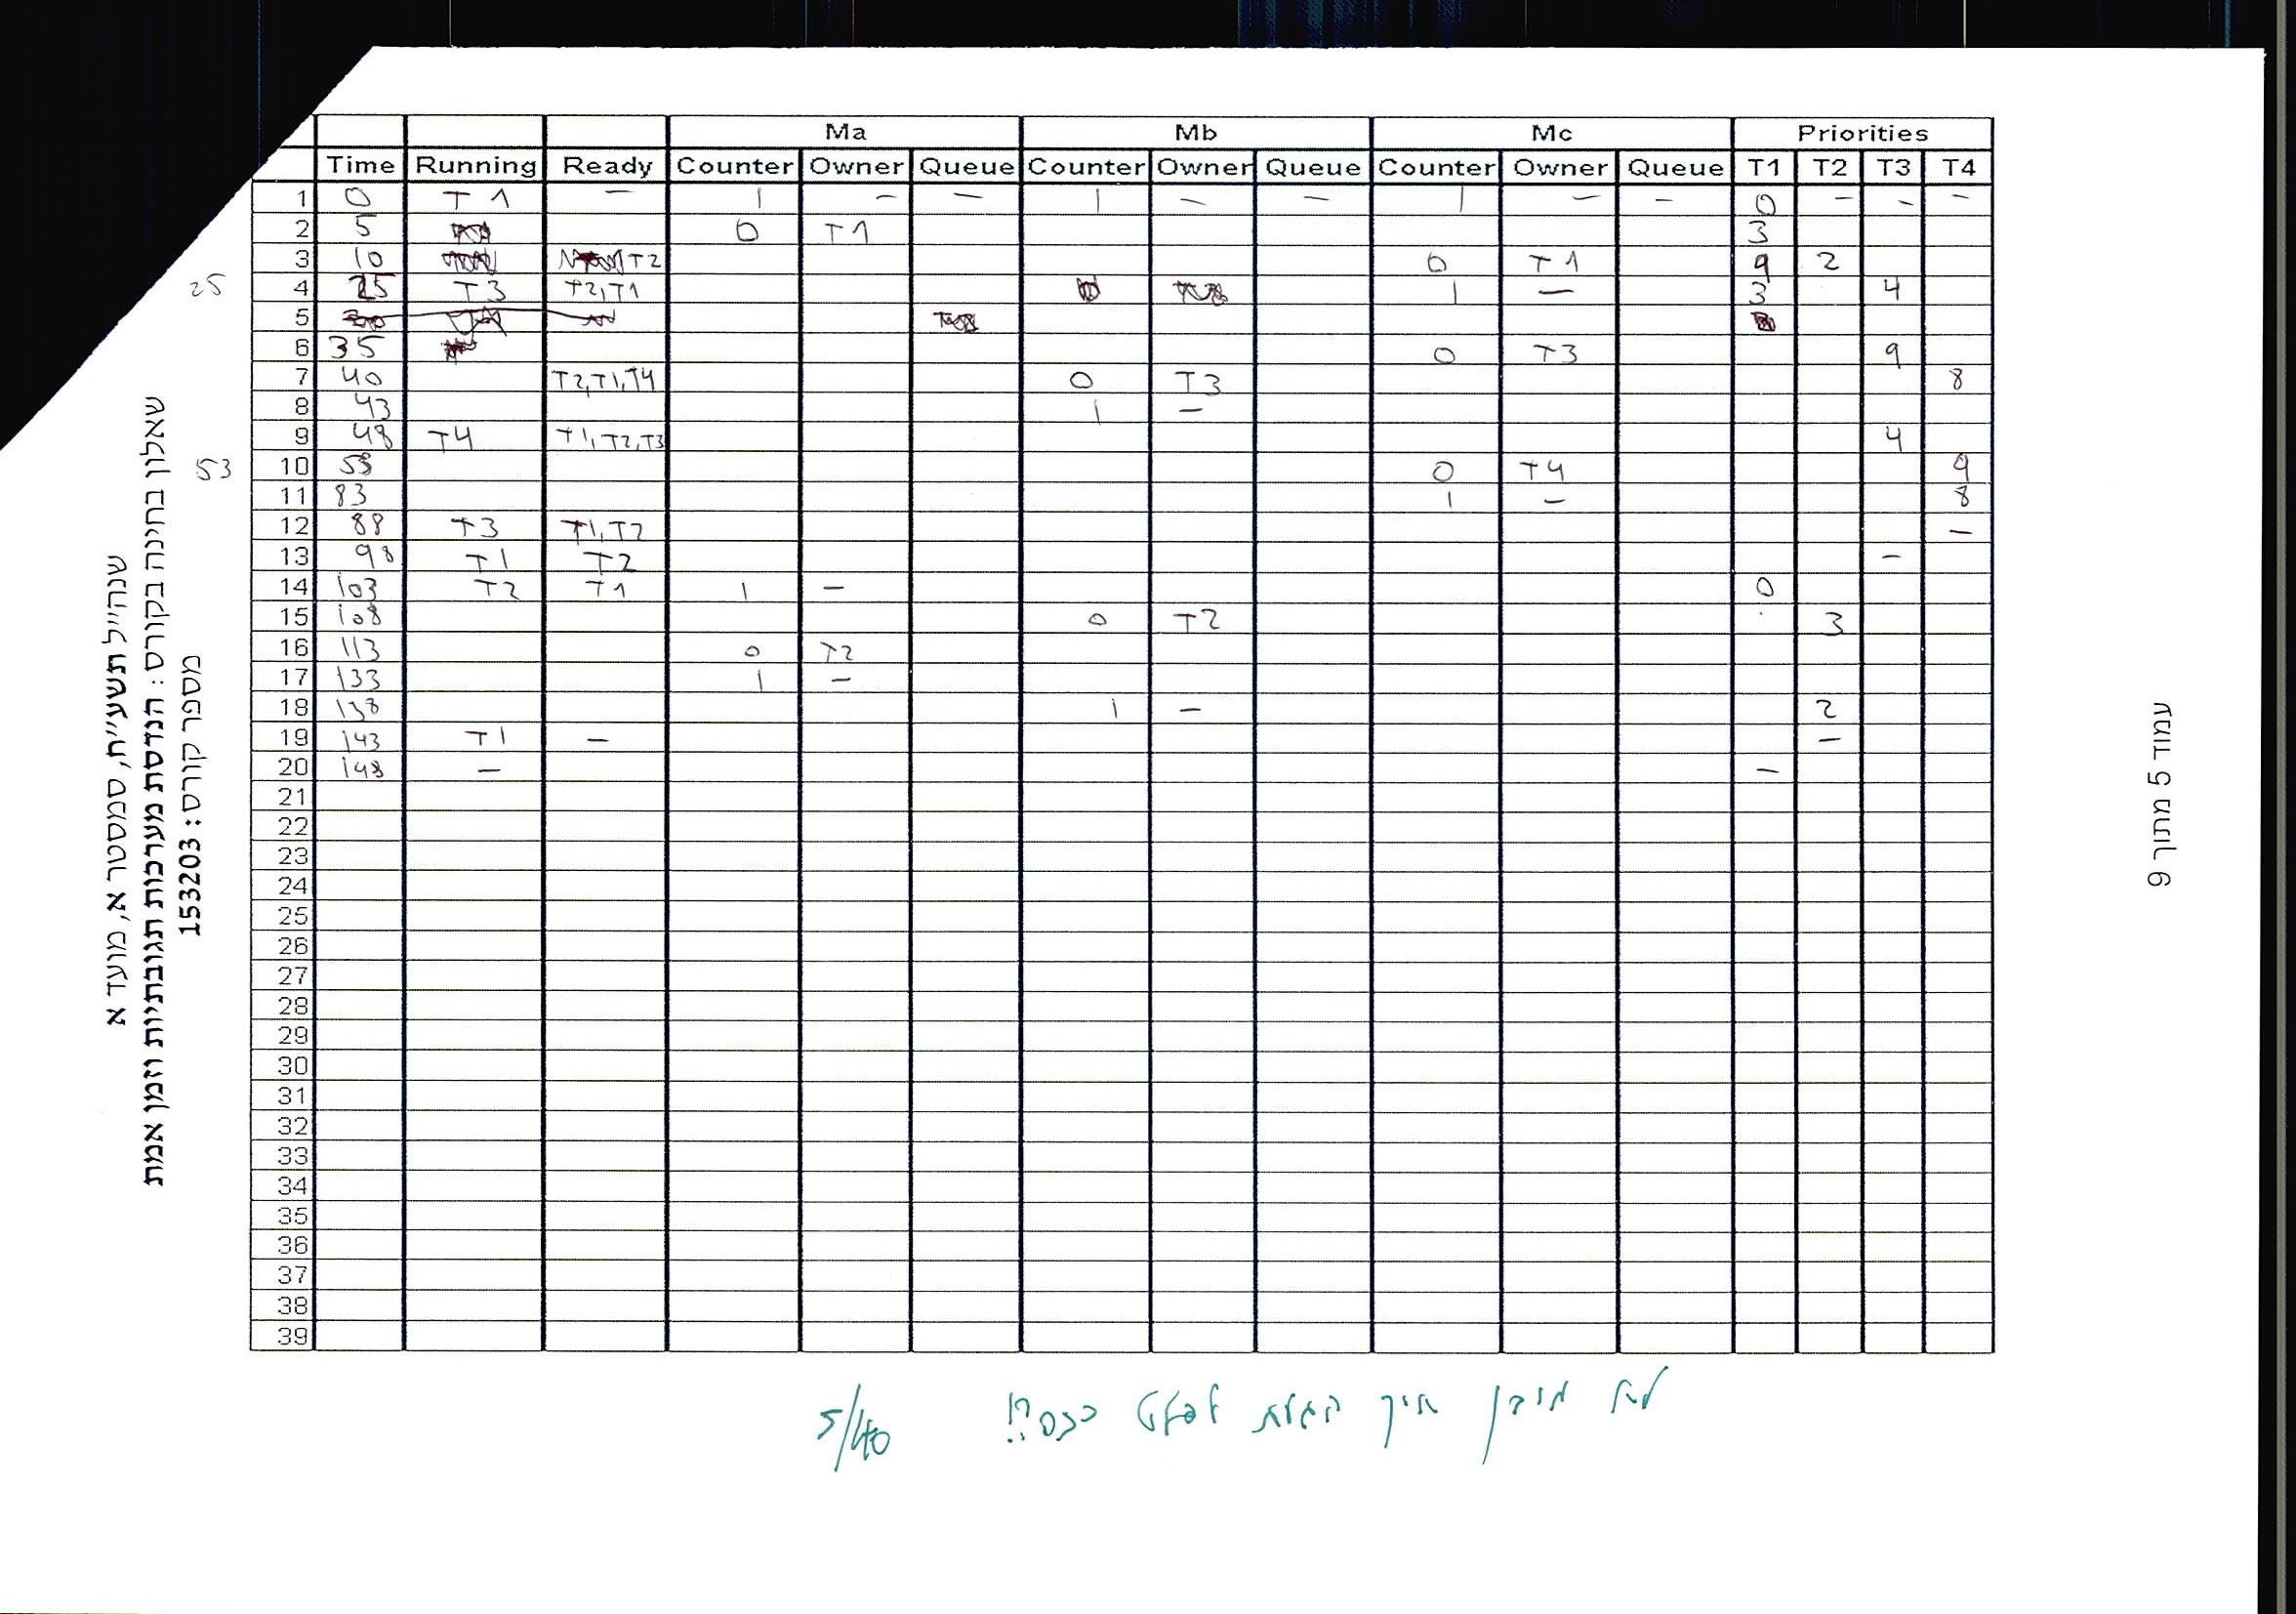 שנה"ל תשע"ח, סמסטר א, מועד א
שאלון בחינה בקורס: הנדסת מערכות תגובתיות וזמן אמת
מספר קורס: 153203
Ma Mb Mc Priorities
Time Running Ready Counter Owner Queue Counter Owner Queue Counter Owner Queue T1 T2 T3 T4
1 0 T1 – 1 – – 1 – – 1 – – 0 – – –
2 5 0 T1 3
3 10 T2 0 T1 9 2
25 4 25 T3 T2,T1 1 – 3 4
5
6 35 0 T3 9
7 40 T2,T1,T4 0 T3 8
8 43 1 –
9 48 T4 T1,T2,T3 4
53 10 53 0 T4 9
11 83 1 – 8
12 88 T3 T1,T2 –
13 98 T1 T2 –
14 103 T2 T1 1 – 0
15 108 0 T2 3
16 113 0 T2
17 133 1 –
18 138 1 – 2
19 143 T1 – –
20 148 – –
21
22
23
24
25
26
27
28
29
30
31
32
33
34
35
36
37
38
39
לא מובן איך הגעת לפלט הזה?!
5/40
עמוד 5 מתוך 9